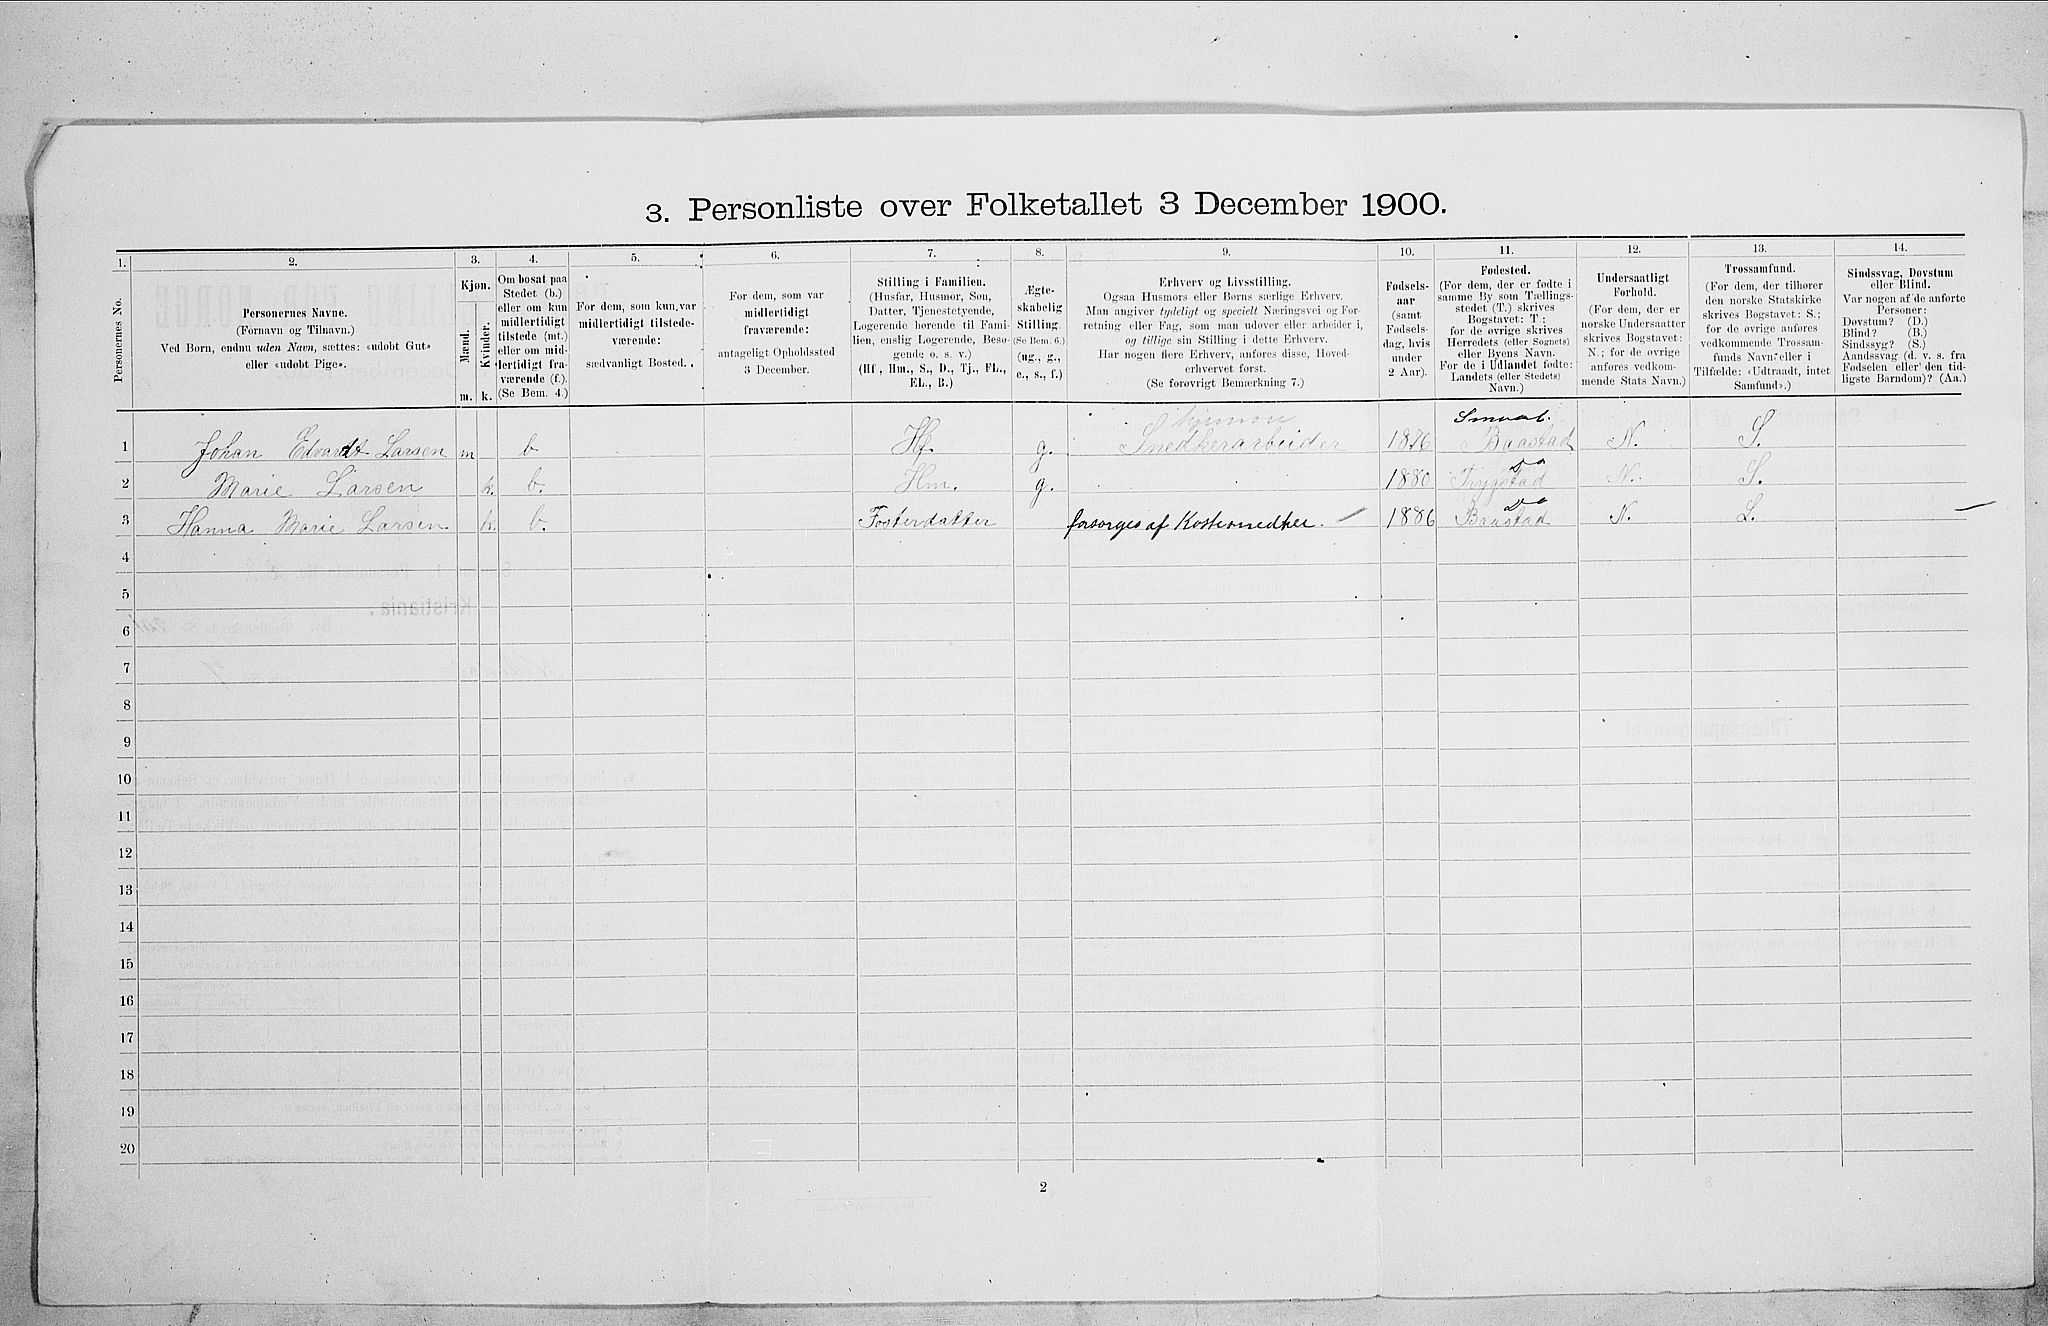 3. Personliste over Folketallet 3 December 1900.
1. 2. 3. 4. 5. 6. 7. 8. 9. 10. 11. 12. 13. 14.
Personernes No.
Personernes Navne.
(Fornavn og Tilnavn.)
Ved Børn, endnu uden Navn, sættes: «udøbt Gut»
eller «udøbt Pige».
Kjøn.
Mænd.
Kvinder.
m. k.
Om bosat paa
Stedet (b.)
eller om kun
midlertidigt
tilstede (mt.)
eller om mid-
lertidigt fra-
værende (f.).
(Se Bem. 4.)
For dem, som kun var
midlertidigt tilstede-
værende:
sædvanligt Bosted.
For dem, som var
midlertidigt
fraværende:
antageligt Opholdssted
3 December.
Stilling i Familien.
(Husfar, Husmor, Søn,
Datter, Tjenestetyende,
Løgerende hørende til Fami-
lien, enslig Løgerende, Besø-
gende o. s. v.)
(Hf., Hm., S., D., Tj., FL.,
EL., B.)
Ægte-
skabelig
Stilling.
(Se Bem. 6.)
(ug., g.,
e., s., f.)
Erhverv og Livsstilling.
Ogsaa Husmors eller Børns særlige Erhverv.
Man angiver tydeligt og specielt Næringsvei og For-
retning eller Fag, som man udøver eller arbeider i,
og tillige sin Stilling i dette Erhverv.
Har nogen flere Erhverv, anføres disse, Hoved-
erhvervet først.
(Se forøvrigt Bemærkning 7.)
Fødsels-
aar
(samt
Fødsels-
dag, hvis
under
2 Aar).
Fødested.
(For dem, der er fødte i
samme By som Tællings-
stedet (T.) skrives
Bogstavet: T.;
for de øvrige skrives
Herredets (eller Sognets)
eller Byens Navn.
For de i Udlandet fødte:
Landets (eller Stedets)
Navn.)
Undersaatligt
Forhold.
(For dem, der er
norske Undersaatter
skrives Bogstavet:
N.; for de øvrige
anføres vedkom-
mende Stats Navn.)
Trossamfund.
(For dem, der tilhører
den norske Statskirke
skrives Bogstavet: S.;
for de øvrige anføres
vedkommende Trossam-
funds Navn eller i
Tilfælde: «Udtraadt, intet
Samfund».)
Sindssvag, Døvstum
eller Blind.
Var nogen af de anførte
Personer:
Døvstum? (D.)
Blind? (B.)
Sindssyg? (S.)
Aandssvag (d. v. s. fra
Fødselen eller den tid-
ligste Barndom)? (Aa.)
1 Johan Edvardt Larsen m b Hf. g. Snedkerarbeider 1876 Baastad N. S.
2 Marie Larsen k. b. Hm. g. 1880 Do Trygstad N. S.
3 Hanna Marie Larsen k. b. Fosterdatter forsørges af Kostinnedher. 1886 Do Baastad N. S. —
4
5
6
7
8
9
10
11
12
13
14
15
16
17
18
19
20
2